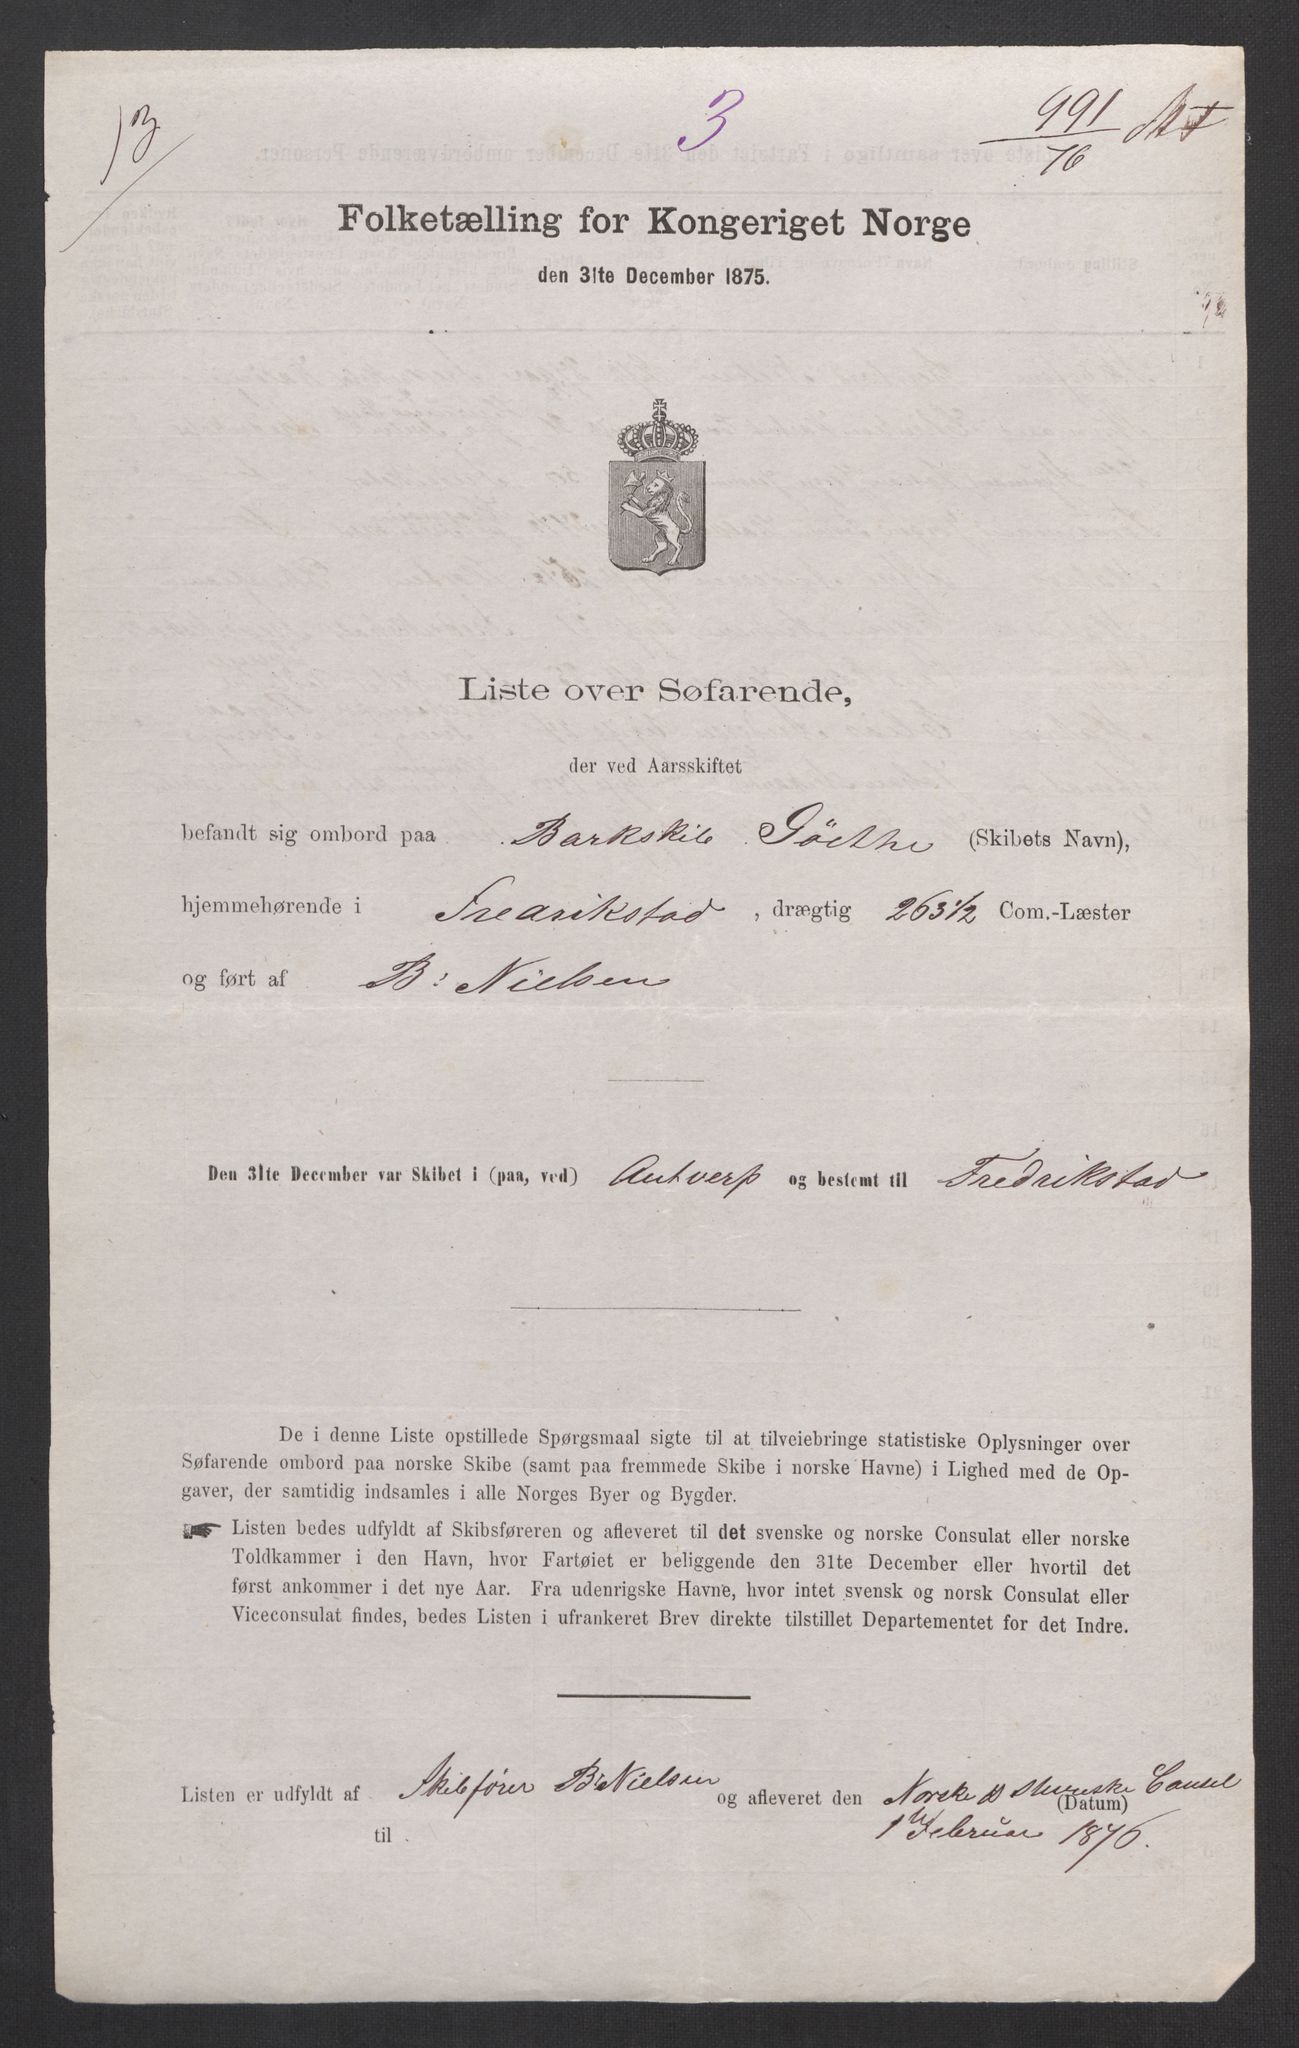 3
3
991
76
Folketælling for Kongeriget Norge
den 31te December 1875.
Liste over Søfarende,
der ved Aarsskiftet
befandt sig ombord paa Barkskib Göethe (Skibets Navn),
hjemmehørende i Fredrikstad, drægtig 263 1/2 Com.-Læster
og ført af B: Nielsen
Den 31te December var Skibet i (paa, ved) Antverp og bestemt til Fredrikstad
De i denne Liste opstillede Spørgsmaal sigte til at tilveiebringe statistiske Oplysninger over
Søfarende ombord paa norske Skibe (samt paa fremmede Skibe i norske Havne) i Lighed med de Op-
gaver, der samtidig indsamles i alle Norges Byer og Bygder.
☛ Listen bedes udfyldt af Skibsføreren og afleveret til det svenske og norske Consulat eller norske
Toldkammer i den Havn, hvor Fartøiet er beliggende den 31te December eller hvortil det
først ankommer i det nye Aar. Fra udenrigske Havne, hvor intet svensk og norsk Consulat eller
Viceconsulat findes, bedes Listen i ufrankeret Brev direkte tilstillet Departementet for det Indre.
Listen er udfyldt af Skibsfører B: Nielsen og afleveret den Norske & Svenske Consul
(Datum)
til 1 Februar 1876.